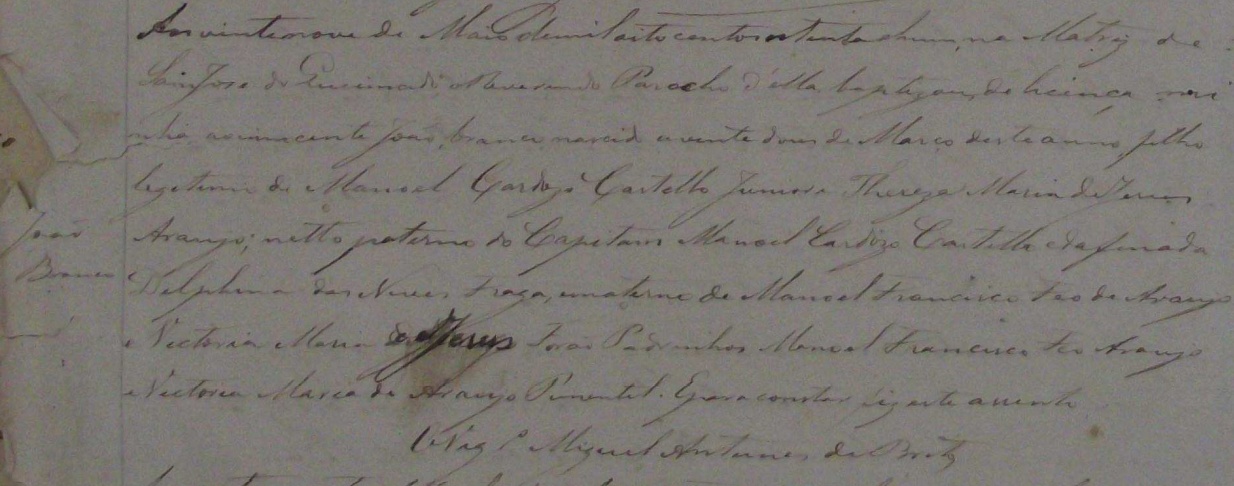 Aos vinte nove de Maio de mil oito centos setenta e hum, na Matriz de
São Jose do Queimado o Reverendo Parocho d'ella baptizou, de licença mi
nha ao innocente João, branco nascido a vente dous de Março deste anno, filho
legitimo de Manoel Cardozo Castello Junior e Thereza Maria de Jesus
João
Araujo; netto paterno do Capitam Manoel Cardozo Castello e da finada
Branco
Delphina das Neves Fraga, e materno de Manoel Francisco Feo de Araujo
e Victoria Maria de Jesus Forão Padrinhos Manoel Francisco Feo Araujo
e Victoria Maria de Araujo Pimentel. E para constar fiz este assento
O Vig.º Miguel Antunes de Brito